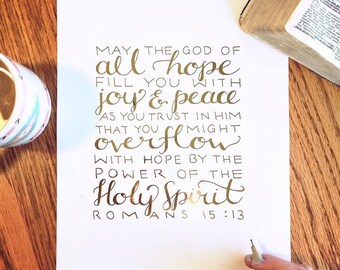 MAY THE GOD OF
all hope
FILL YOU WITH
joy & peace
AS YOU TRUST IN HIM
THAT YOU MIGHT
overflow
WITH HOPE BY THE
POWER OF THE
Holy Spirit
ROMANS 15:13